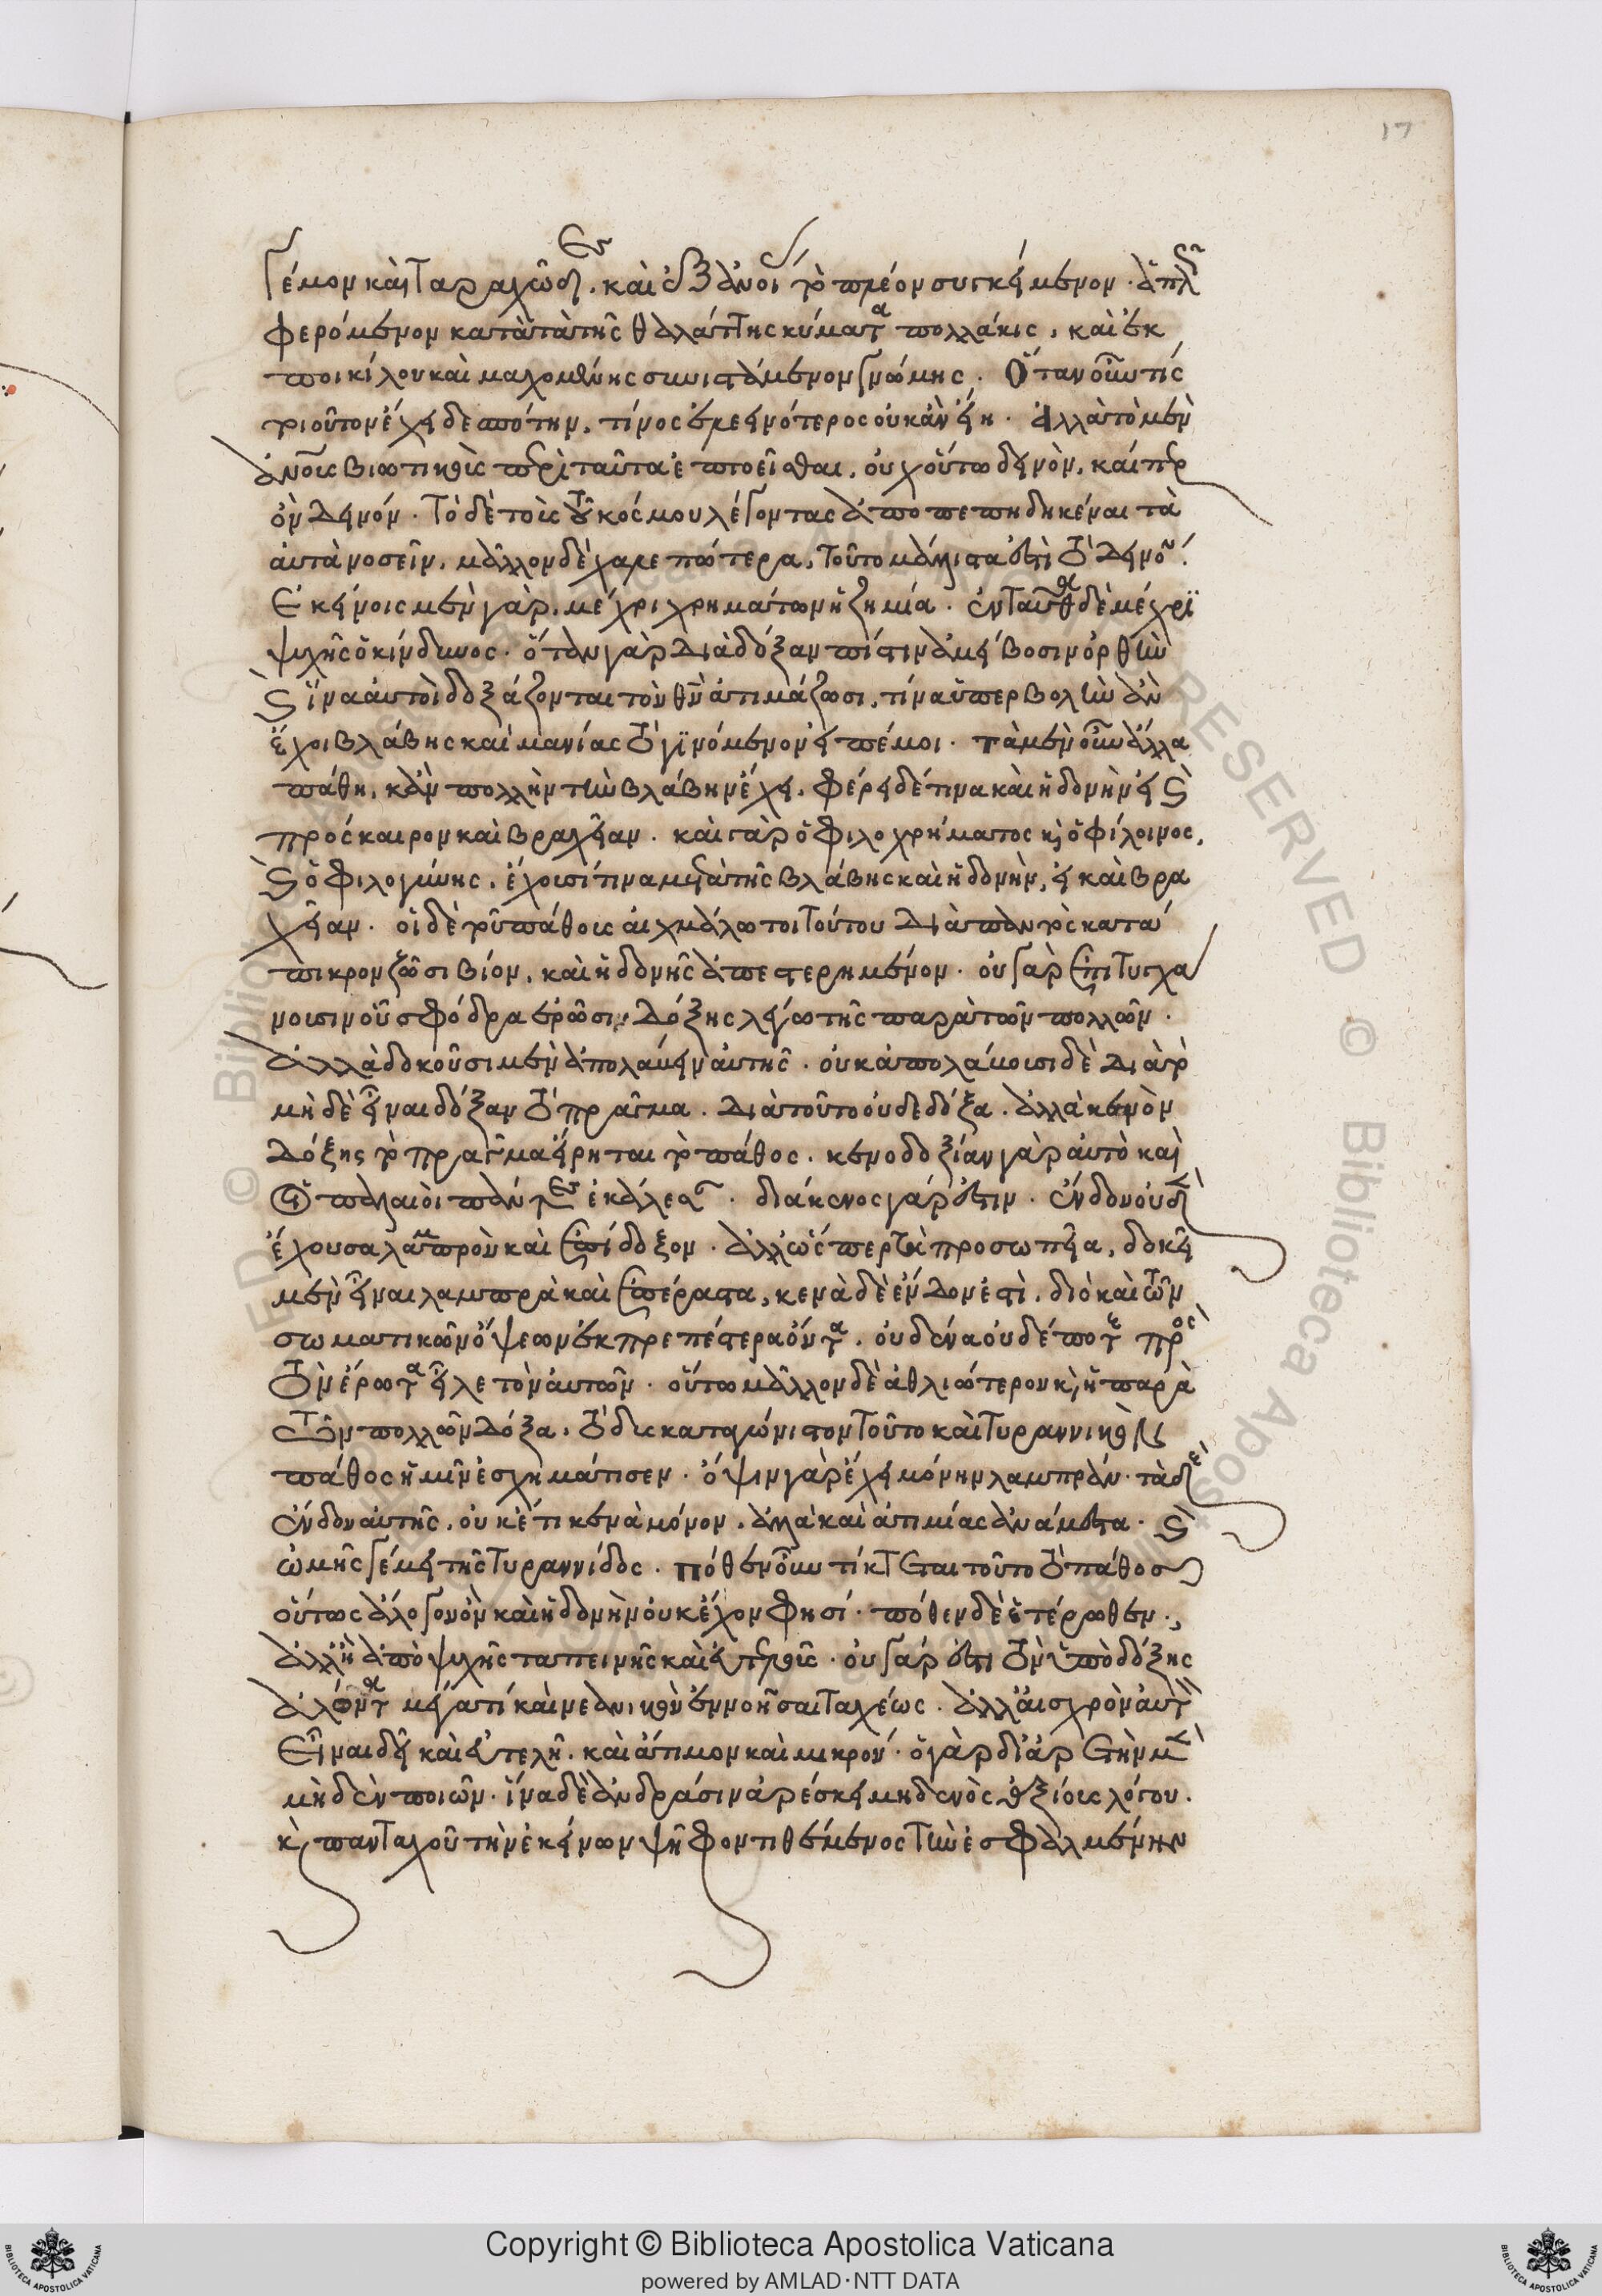 17
γέμον καὶ ταραχῶδες, καὶ ἐξ ἀνοή τὸ πλέον συγκείμενον. ἁπλῶς
φερόμενον κατὰ τὰ τῆς θαλάττης κύματα πολλάκις, καὶ ἐκ
ποικίλου καὶ μαχομένης συνιστάμενον γνώμης. Ὅταν οὖν τίς
τοιοῦτον ἔχει δεσπότην, τίνος ἐλεεινότερος οὐκ ἂν εἴη. ἀλλὰ τὸ μὲν
ἀνοις βιωτικοῖς περὶ ταῦτα ἐπτοεῖσθαι, οὐχ οὕτω δεινὸν, καίπερ
ὂν δεινόν. Τὸ δὲ τοὺς τοῦ κόσμου λέγοντας ἀποπεπηδηκέναι τὰ
αὐτὰ νοσεῖν, μᾶλλον δὲ χαλεπώτερα, τοῦτο μάλιστα ἐστὶ τὸ δεινόν.
Ἐκείνοις μὲν γὰρ, μέχρι χρημάτων ἡ ζημία. ἐνταῦθα δὲ μέχρι
ψυχῆς ὁ κίνδυνος. ὅταν γὰρ διὰ δόξαν πίστιν ἀμείβωσιν ὀρθὴν
καὶ ἵνα αὐτοὶ δοξάζονται τὸν θν ἀτιμάζωσι, τίνα ὑπερβολὴν ἂν
ἔχοι βλάβης καὶ μανίας τὸ γινόμενον εἰπέ μοι. τὰ μὲν οὖν ἄλλα
πάθη, κἂν πολλὴν τὴν βλάβην ἔχει, φέρει δέ τινα καὶ ἡδονὴν εἰ καὶ
πρόσκαιρον καὶ βραχεῖαν. καὶ γὰρ ὁ φιλοχρήματος καὶ ὁ φίλοινος,
καὶ ὁ φιλογύνης, ἔχουσί τινα μετὰ τῆς βλάβης καὶ ἡδονὴν, εἰ καὶ βρα
χεῖαν. οἱ δὲ τοῦ πάθους αἰχμάλωτοι τούτου διὰ παντὸς κατὰ
πικρον ζῶσι βίον, καὶ ἡδονῆς ἀπεστερημένον. οὐ γὰρ ἐπιτυγχά
νουσιν οὗ σφόδρα ἐρῶσι, δόξης λέγω τῆς παρὰ τῶν πολλῶν.
ἀλλὰ δοκοῦσι μὲν ἀπολαύειν αὐτῆς. οὐκ ἀπολαύουσι δὲ διὰ τὸ
μὴ δὲ εἶναι δόξαν τὸ πρᾶγμα. διὰ τοῦτο οὐδὲ δόξα. ἀλλὰ κενὸν
δόξης τὸ πρᾶγμα εἴρηται τὸ πάθος. κενοδοξίαν γὰρ αὐτὸ καὶ
οἱ παλαιοὶ πάντες ἐκάλεσαν. διάκενος γάρ ἐστιν. ἔνδον οὐδὲν
ἔχουσα λαμπρὸν καὶ ἐπίδοξον. ἀλλ' ὥσπερ τὰ προσωπεῖα, δοκεῖ
μὲν εἶναι λαμπρὰ καὶ ἐπέραστα, κενὰ δὲ ἔνδον ἐστὶ. διὸ καὶ τῶν
σωματικῶν ὄψεων ἐκπρεπέστερα ὄντα, οὐδένα οὐδέποτε πρὸς
τὸν ἔρωτα εἷλε τὸν αὐτῶν. οὕτω μᾶλλον δὲ ἀθλιώτερον καὶ ἡ παρὰ
τῶν πολλῶν δόξα, τὸ δυσκαταγώνιστον τοῦτο καὶ τυραννικὸν
πάθος ἡμῖν ἐσχημάτισεν. ὄψιν γὰρ ἔχει μόνην λαμπράν. τὰ δὲ
ἔνδον αὐτῆς, οὐκέτι κενὰ μόνον, ἀλλὰ καὶ ἀτιμίας ἀνάμεστα. καὶ
ὠμῆς γέμει τῆς τυραννίδος. πόθεν οὖν τίκτεται τοῦτο τὸ πάθος
οὕτως ἄλογον ὂν καὶ ἡδονὴν οὐκ ἔχον φησί. πόθεν δὲ ἑτέρωθεν.,
ἀλλ' ἢ ἀπὸ ψυχῆς ταπεινῆς καὶ εὐτελοῦς. οὐ γάρ ἐστι τὸν ὑπὸ δόξης
ἁλόντα μέγα τί καὶ νεανικὸν ἐννοῆσαι ταχέως. ἀλλ' αἰσχρὸν αὐτὸν
εἶναι δεῖ καὶ εὐτελῆ. καὶ ἄτιμον καὶ μικρόν. ὁ γὰρ δι' ἀρετὴν μὲν
μηδὲν ποιῶν. ἵνα δὲ ἀνδράσιν ἀρέσκει μηδενὸς ἀξίοις λόγου.
καὶ πανταχοῦ τὴν ἐκείνων ψῆφον τιθέμενος τὴν ἐσφαλμένην
Copyright © Biblioteca Apostolica Vaticana
powered by AMLAD·NTT DATA